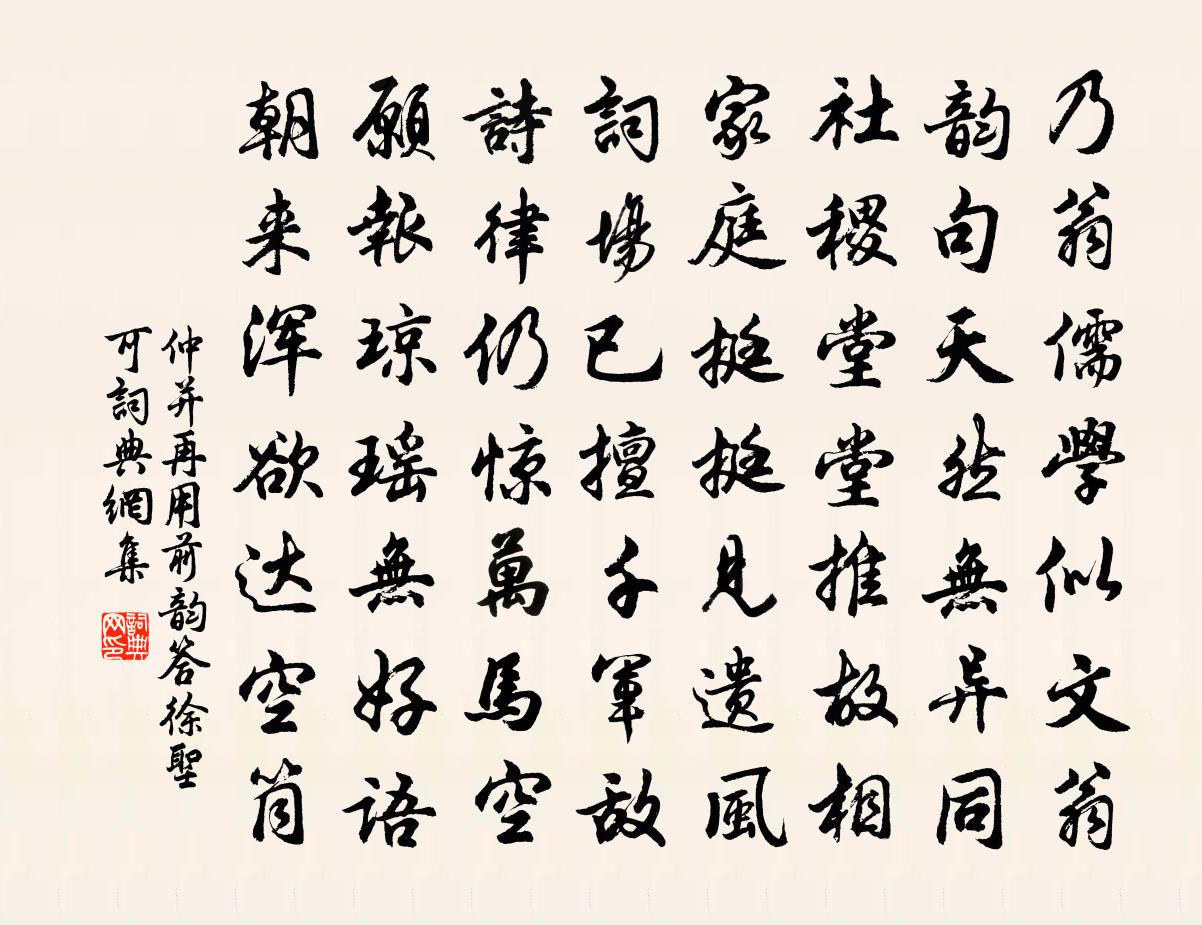 乃翁儒學似文翁
韵句天然無异同
社稷堂堂推故相
家庭挺挺見遺風
詞場已擅千軍敵
詩律仍惊萬馬空
願報琼瑶無好語
朝来浑欲达空筒
仲并再用前韵答徐聖
可詞典網集
詞典网印